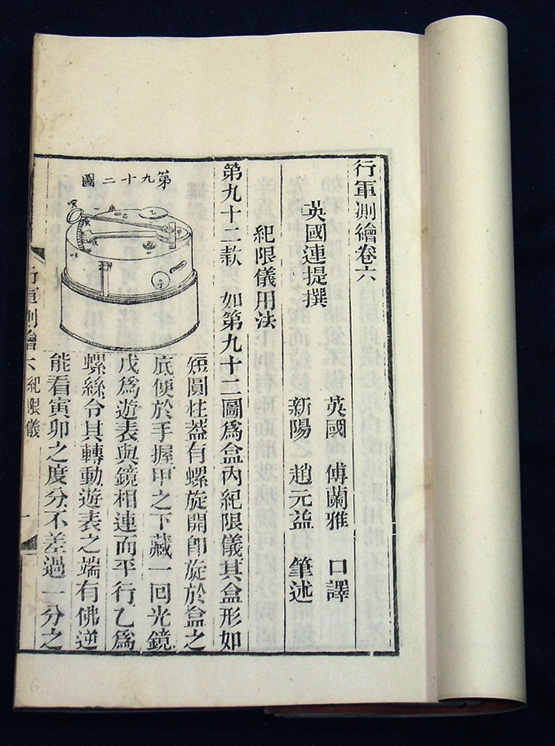 行軍測繪卷六
英國連提撰
英國 傅蘭雅 口譯
新陽 趙元益 筆述
紀限儀用法
第九十二款 如第九十二圖爲盒內紀限儀其盒形如
短圓柱蓋有螺旋開卽旋於盒之
底便於手握甲之下藏一回光鏡
戊爲遊表與鏡相連而平行乙爲
螺絲令其轉動遊表之端有佛逆
能看寅卯之度分不差過一分之
第九十二圖
行軍測繪六 紀限儀 一